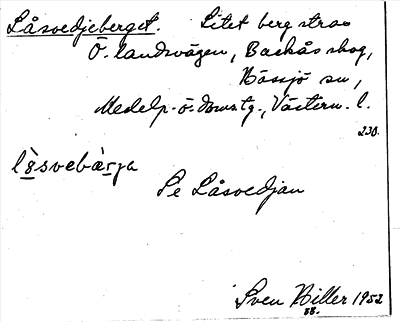 Låsvedjeberget. Litet berg strax
Ö. landsvägen, Backås skog,
Hässjö sn,
Medelp. ö. domsg., Västern. l.
230.
lå̀svebàrja
Se Låsvedjan
Sven Hiller 1952